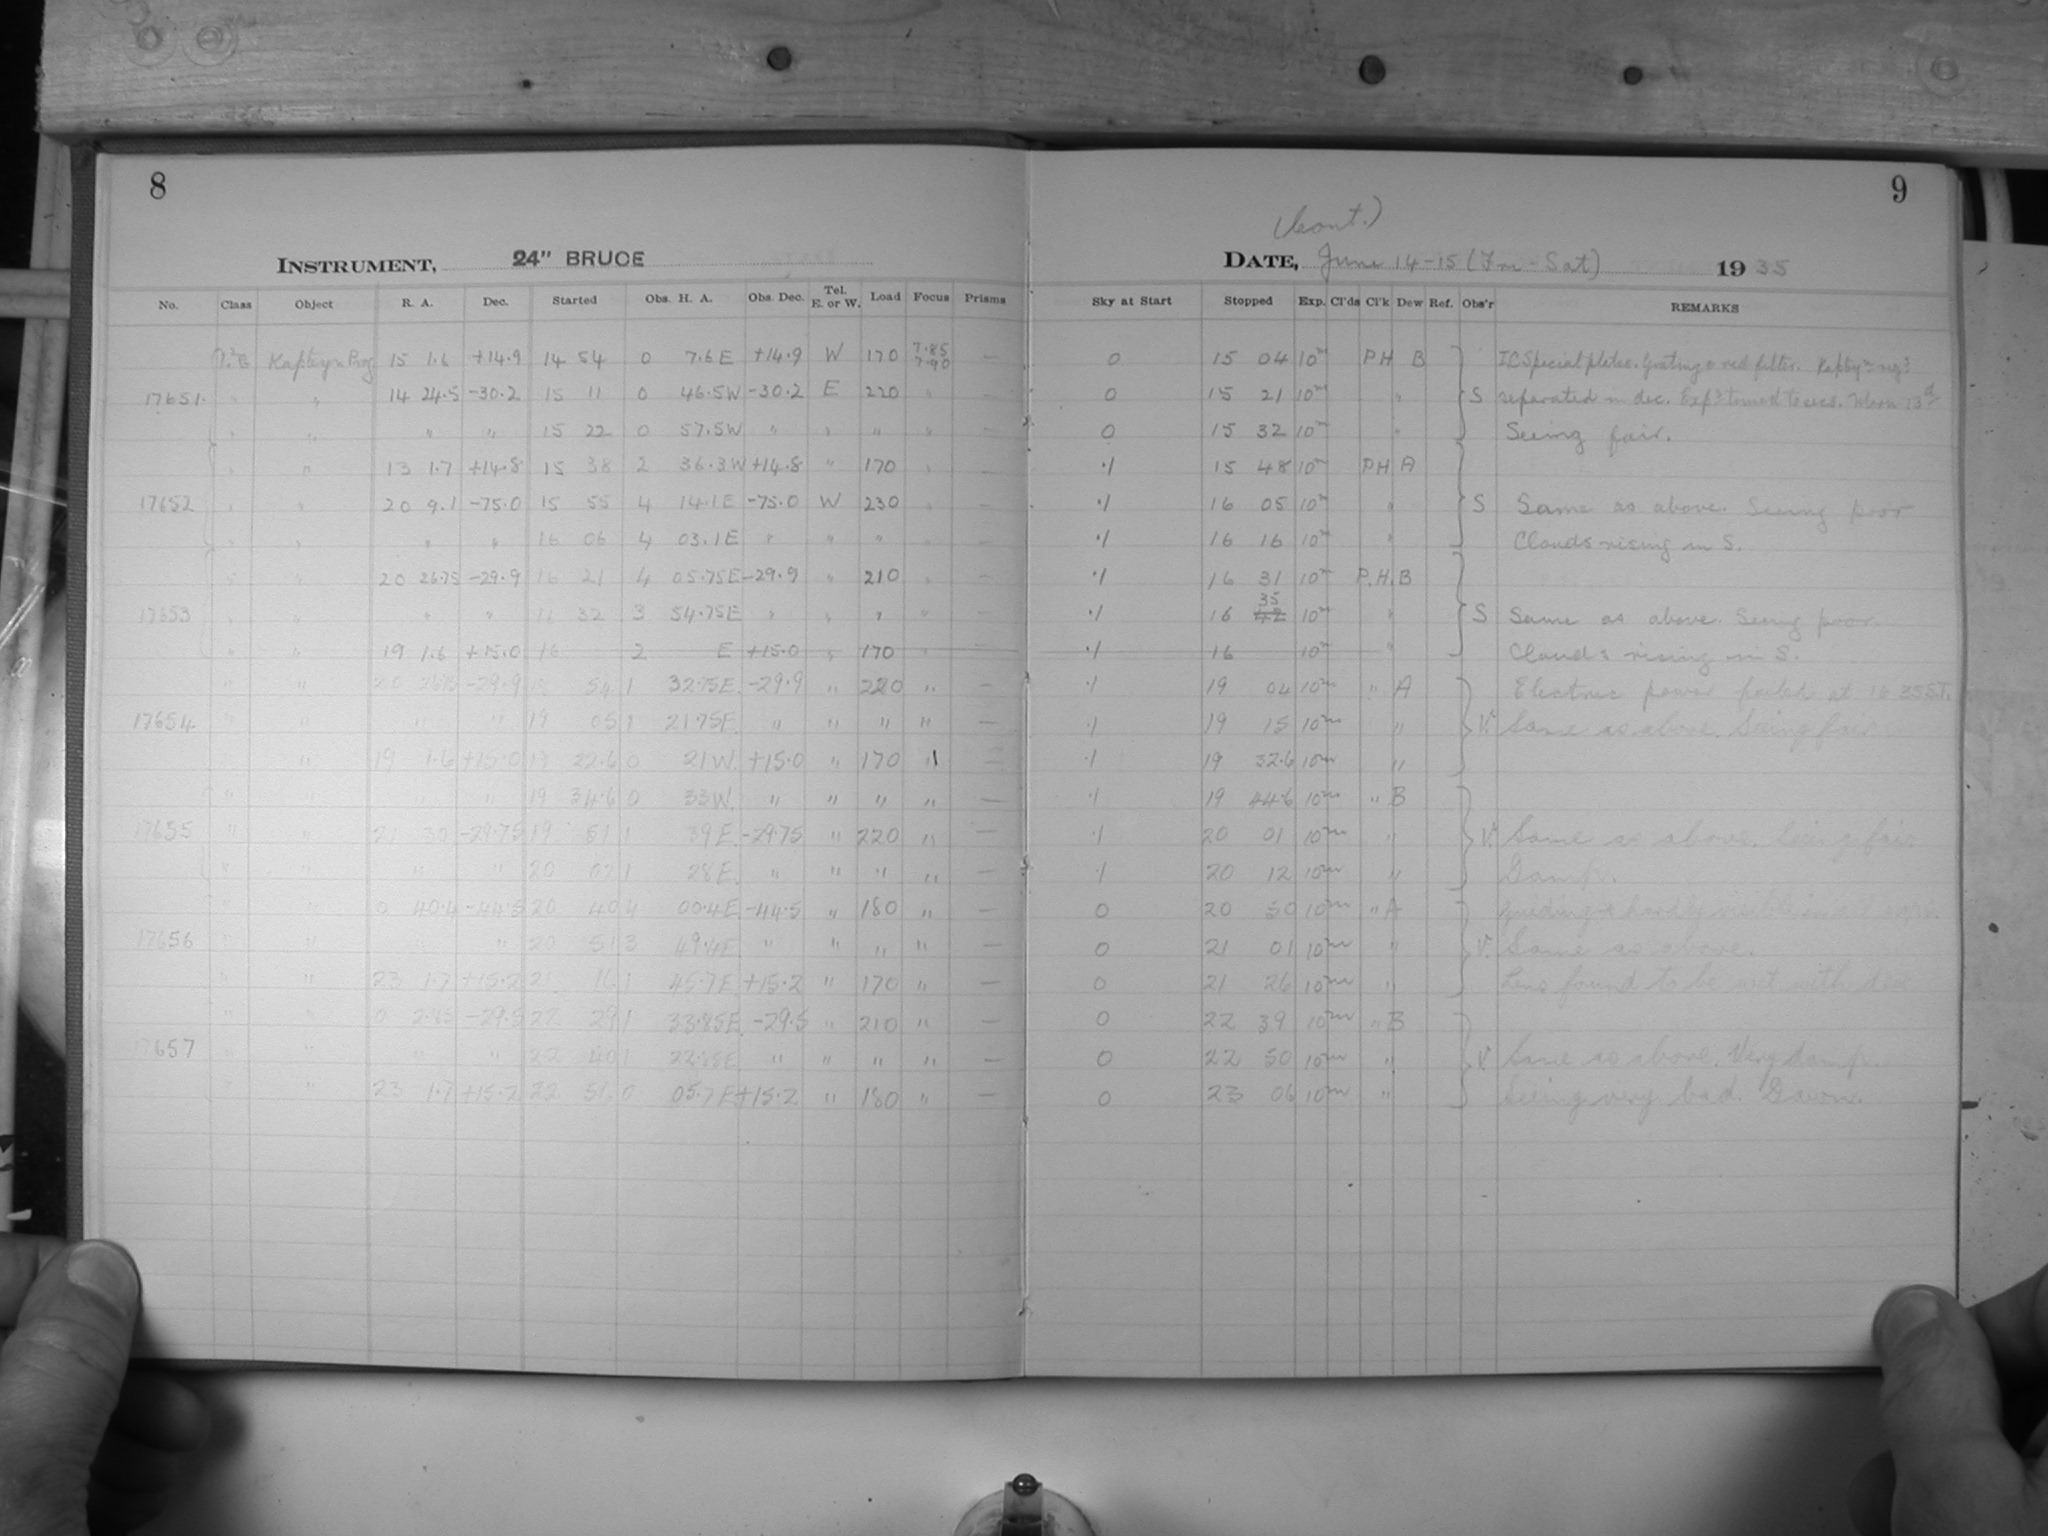 8
INSTRUMENT, 24" BRUCE
No. Class Object R. A. Dec. Started Obs. H. A. Obs. Dec. Tel. E. or W. Load Focus Prisms
Kapteyn 15 1.6 +14.9 14 54 0 7.6 E +14.9 W 170 7.85 7.90 —
17651 " " 14 24.5 -30.2 15 11 0 46.5W -30.2 E 220 " —
" " " " 15 22 0 57.5W " " " " —
" " 13 1.7 +14.8 15 38 2 36.3W +14.8 " 170 " —
17652 " " 20 9.1 -75.0 15 55 4 14.1E -75.0 W 230 " —
" " " " 16 06 4 03.1E " " " " —
" " 20 26.75 -29.9 16 21 4 05.75E -29.9 " 210 " —
17653 " " " " 16 32 3 54.75E " " " " —
" " 19 1.6 +15.0 16 2 E +15.0 " 170 " —
" " 20 -29.9 54 1 32.75E -29.9 " 220 " —
17654 " " " " 19 05 1 21.75E " " " " —
" 19 1.6 +15.0 19 22.6 0 21W. +15.0 " 170 " —
" " " " 19 34.6 0 33W. " " " " —
17655 " " 21 30 -29.75 19 51 1 39E. -29.75 " 220 " —
" " " " 20 02 1 28E. " " " " —
" 0 40.4 -44.5 20 40 4 00.4E -44.5 " 180 " —
17656 " " " " 20 51 3 49.4E " " " " —
" " 23 1.7 +15.2 21 16 1 45.7E +15.2 " 170 " —
" " 0 2.85 -29.5 22 29 1 33.85E -29.5 " 210 " —
17657 " " " " 22 40 1 22.85E " " " " —
" " 23 1.7 +15.2 22 56 0 05.7E +15.2 " 180 " —
9
(Cont.)
DATE, June 14-15 (Fri-Sat) 1935
Sky at Start Stopped Exp. Cl'ds Cl'k Dew Ref. Obs'r REMARKS
0 15 04 10m PH B IC Special plates. Grating & red filter.
0 15 21 10m " S separated in dec.
0 15 32 10m " Seeing fair.
·/ 15 48 10m PH A
·/ 16 05 10m " S Same as above. Seeing poor
·/ 16 16 10m " Clouds rising in S.
·/ 16 31 10m P.H. B
·/ 16 35 42 10m " S Same as above. Seeing poor.
·/ 16 10m " Clouds rising in S.
·/ 19 04 10m " A Electric power failed at 16 35 S.T.
·/ 19 15 10m " V. Same as above. Seeing fair
·/ 19 32.6 10m "
·/ 19 44.6 10m " B
·/ 20 01 10m " V. Same as above. Seeing fair.
·/ 20 12 10m " Damp.
0 20 50 10m " A Guiding * hardly visible
0 21 01 10m " V. Same as above.
0 21 26 10m " Lens found to be wet with dew
0 22 39 10m " B
0 22 50 10m " V. Same as above. Very damp.
0 23 06 10m " Seeing very bad. Dawn.